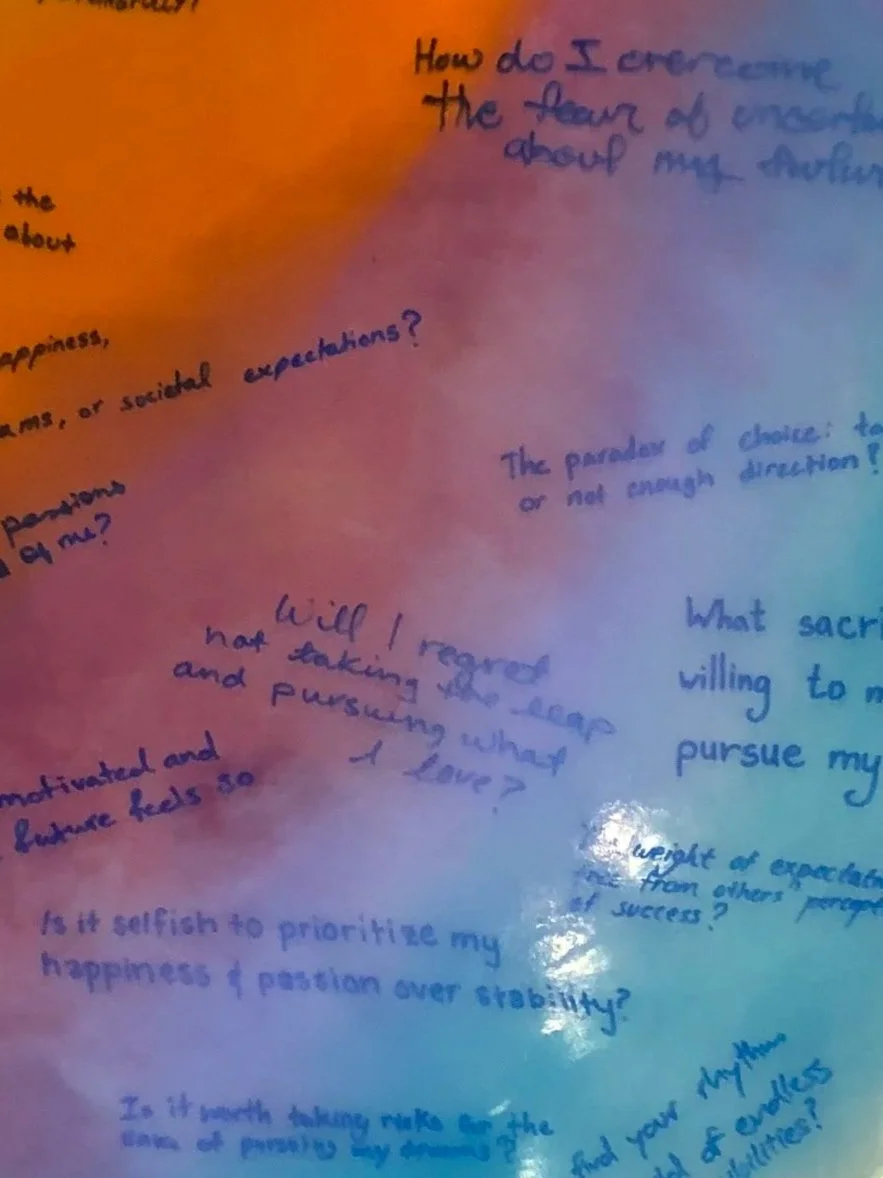 How do I overcome
the fear of
about my
the
about
appiness,
ams, or societal expectations?
The paradox of choice:
or not enough direction?
passions
of me?
Will I regret
not taking the leap
and pursuing what
I love?
What sacri
willing to
pursue my
motivated and
future feels so
weight of expectat
from others'
of success?
Is it selfish to prioritize my
happiness & passion over stability?
Is it worth taking risks for the
sake of pursuing my dreams?
find your rhythm
of endless